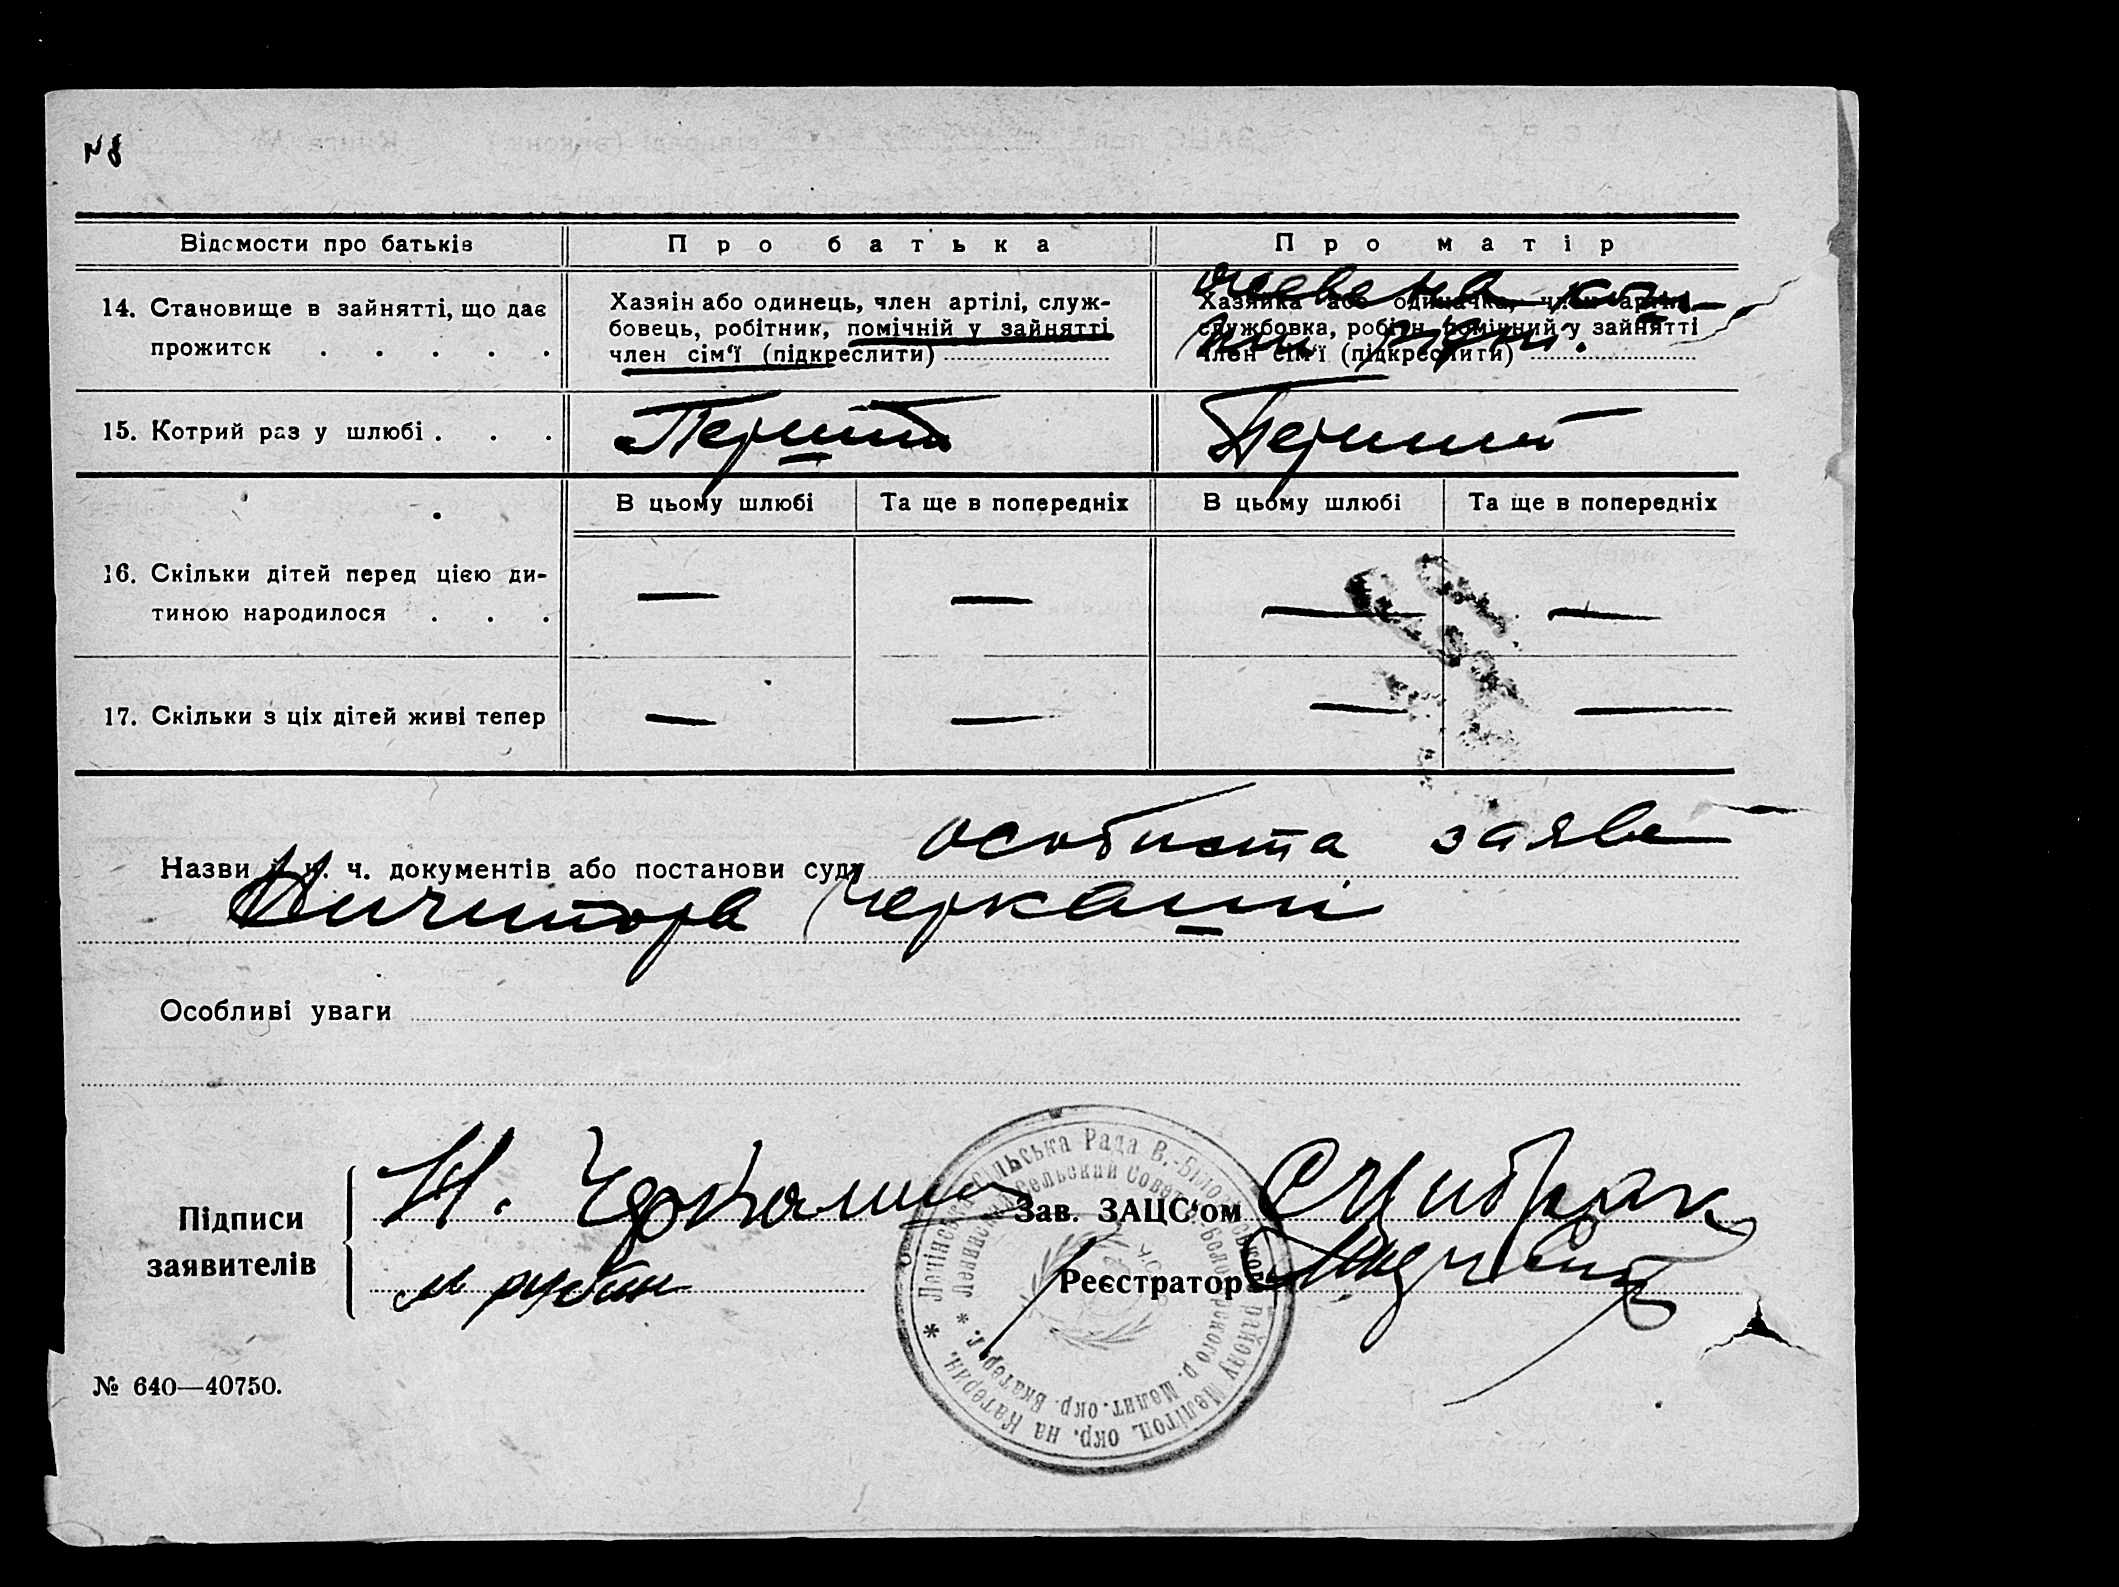 № 8
Відомости про батьків
Про батька
Про матір
14. Становище в зайнятті, що дає
прожиток
Хазяін або одинець, член артілі, служ-
бовець, робітник, помічній у зайнятті
член сім'ї (підкреслити)
Хазяйка або одиначка, член артілі,
службовка, робітн. помічний у зайнятті
член сім'ї (підкреслити)
15. Котрий раз у шлюбі
Перший
Перший
В цьому шлюбі
Та ще в попередніх
В цьому шлюбі
Та ще в попередніх
16. Скільки дітей перед цією ди-
тиною народилося
— — — —
17. Скільки з ціх дітей живі тепер
— — — —
Назви й н. ч. документів або постанови суду особиста заява
Черкаші
Особливі уваги
Підписи
заявителів
Н.
Зав. ЗАЦС'ом
Реєстратор
м рубан
Ленінська Сільська Рада В.-Білозірського району Мелітоп. окр. на Катерин.
Ленинский Сельский Совет В.-Белозерского р. Мелит. окр. Екатер. г.
№ 640—40750.